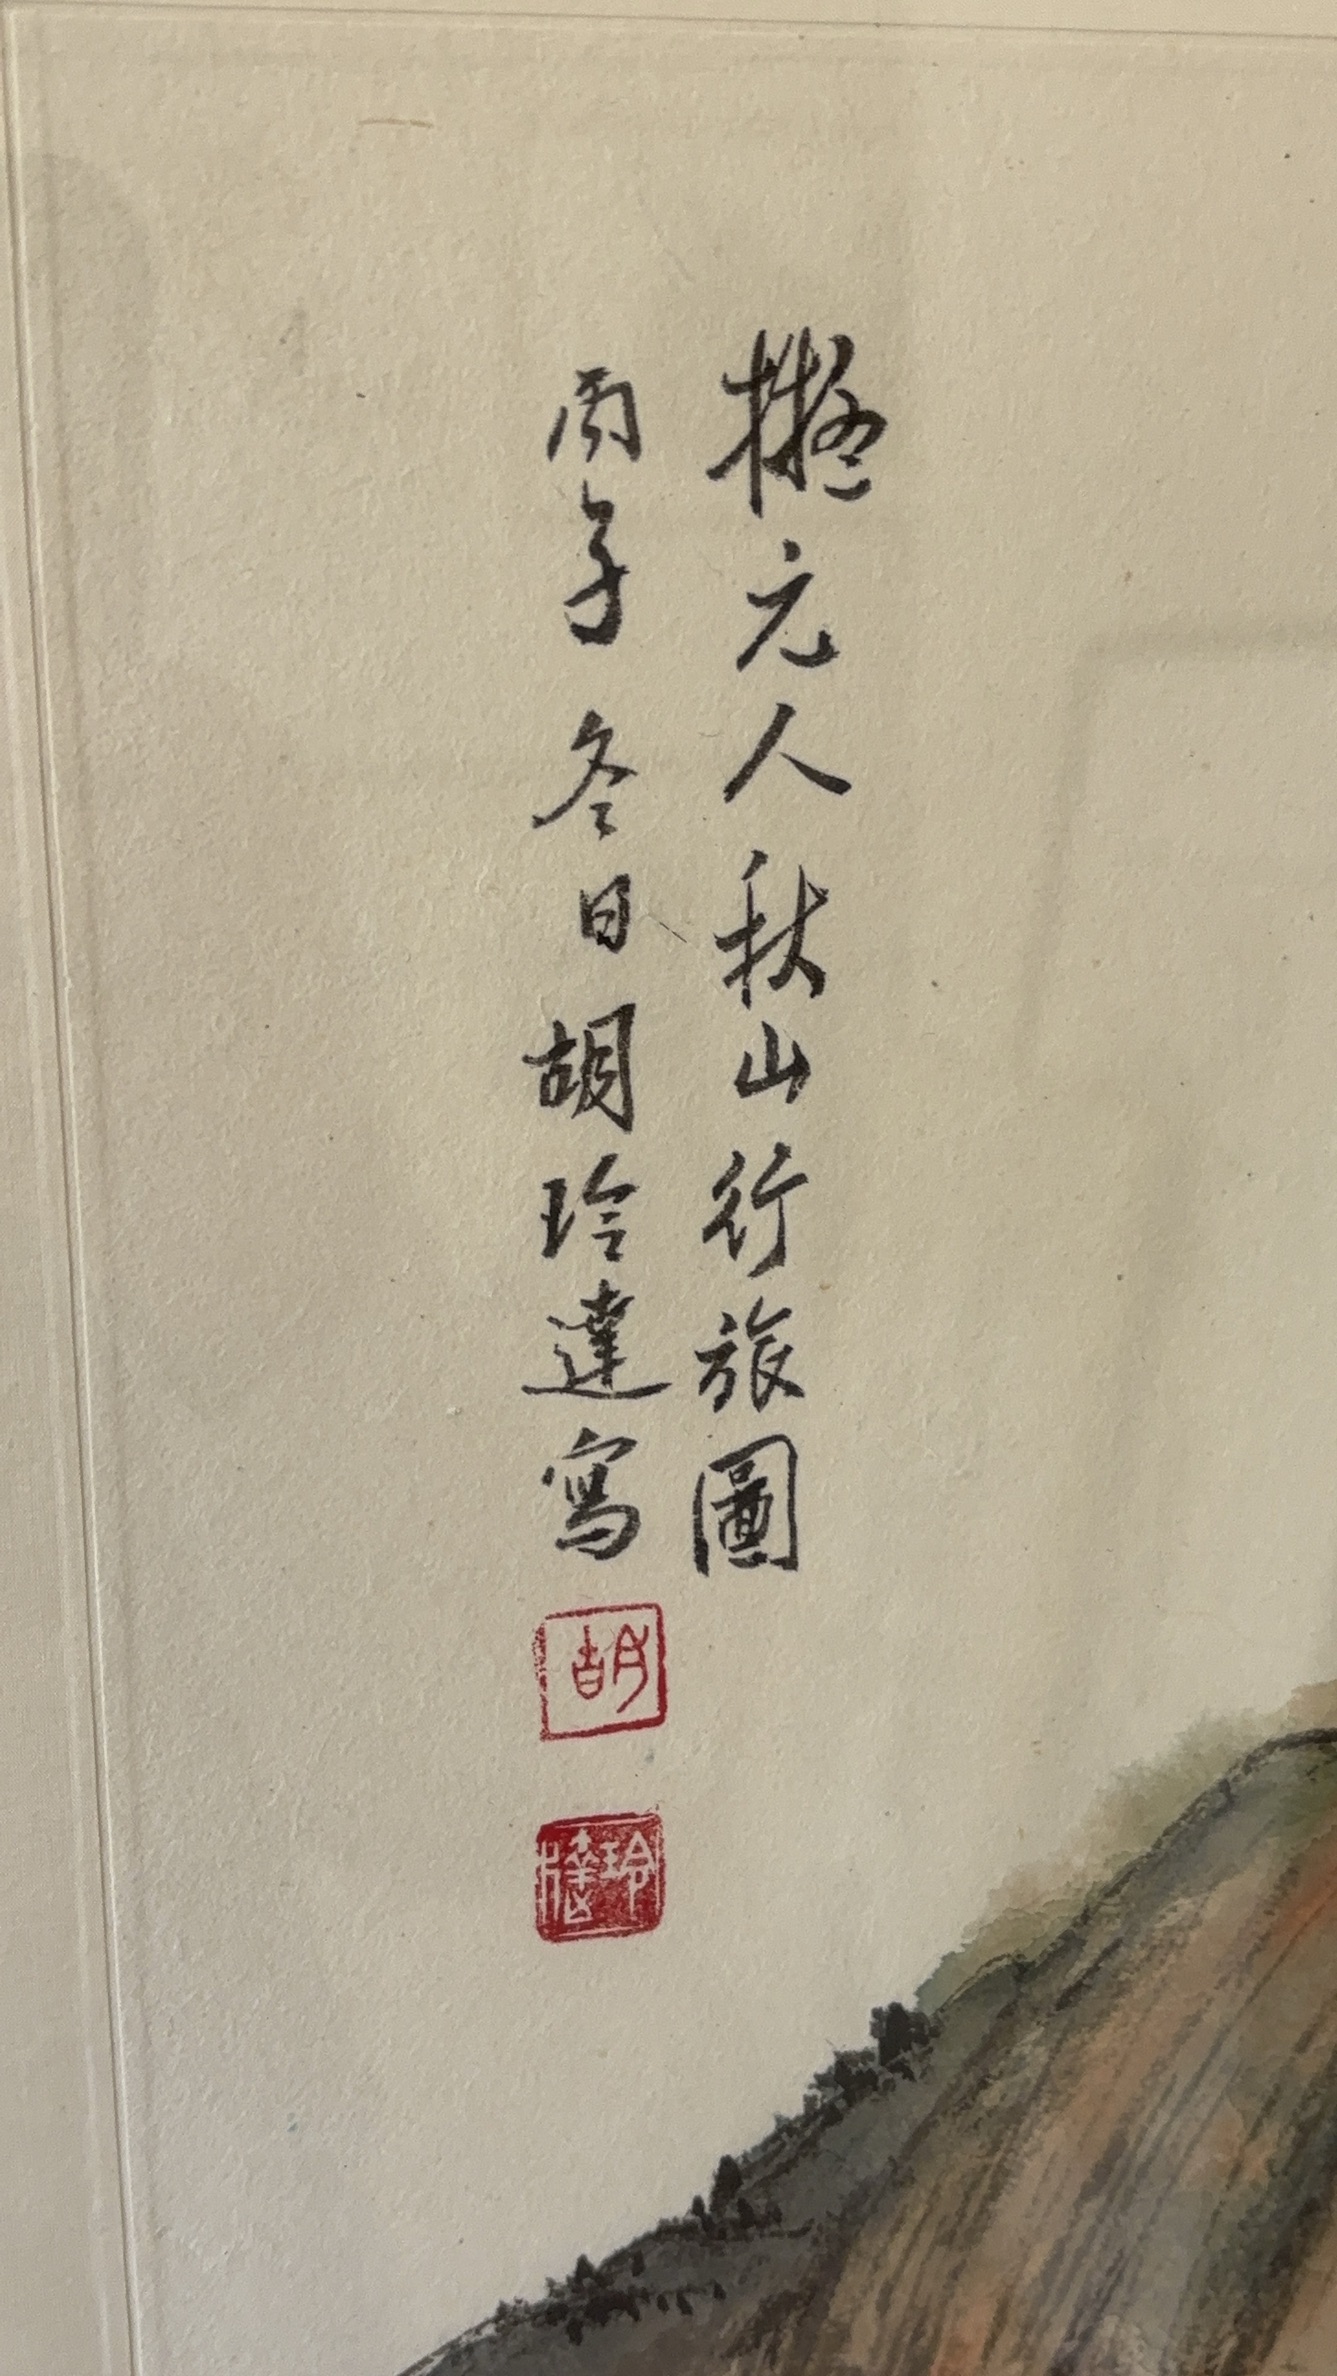 擬元人秋山行旅圖
丙子冬日胡玲達寫
胡
玲達